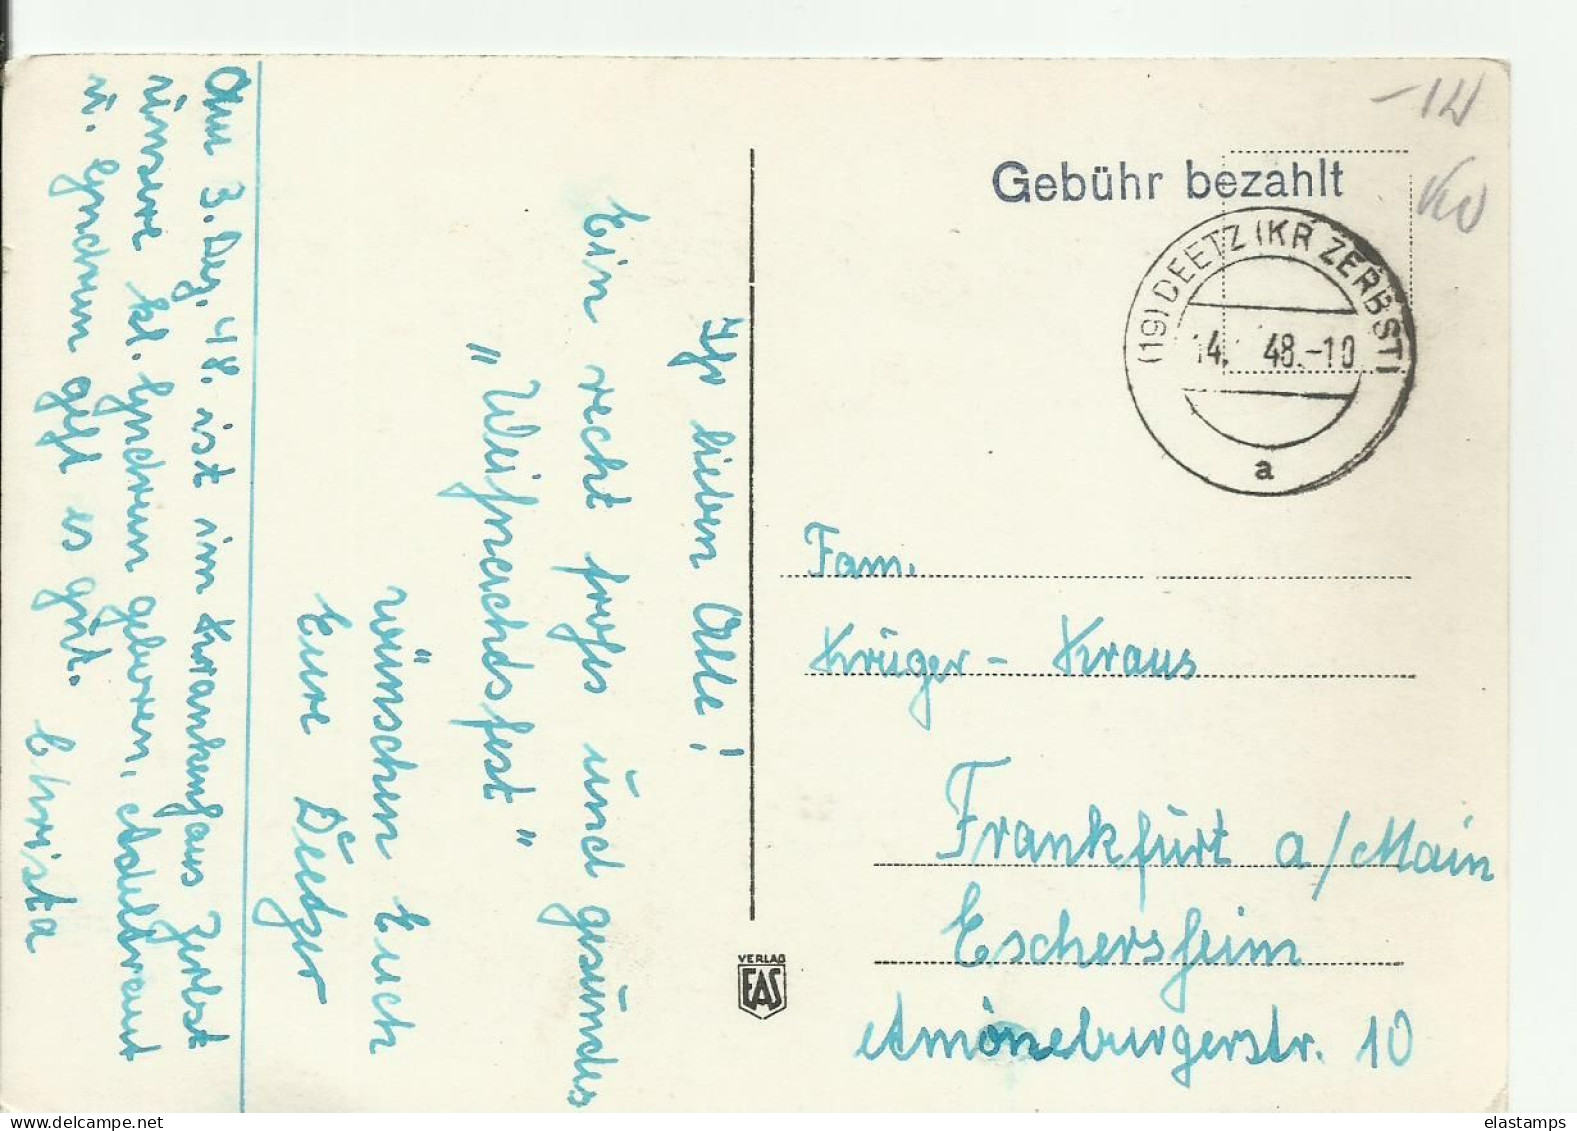 Gebühr bezahlt
(19) DEETZ (KR ZERBST)
14. 48.-10
a
Fam.
Krüger - Kraus
Frankfurt a/Main
Eschersheim
Amöneburgerstr. 10
VERLAG
EAS
Ihr lieben Alle!
Ein recht frohes und gesundes
"Weihnachtsfest"
wünschen Euch
Eure Deetzer
Am 3. Dez. 48. ist im Krankenhaus Zerbst
unsere kl. Gudrun geboren, Adeltraut
u. Gudrun geht es gut.
Christa
elastamps